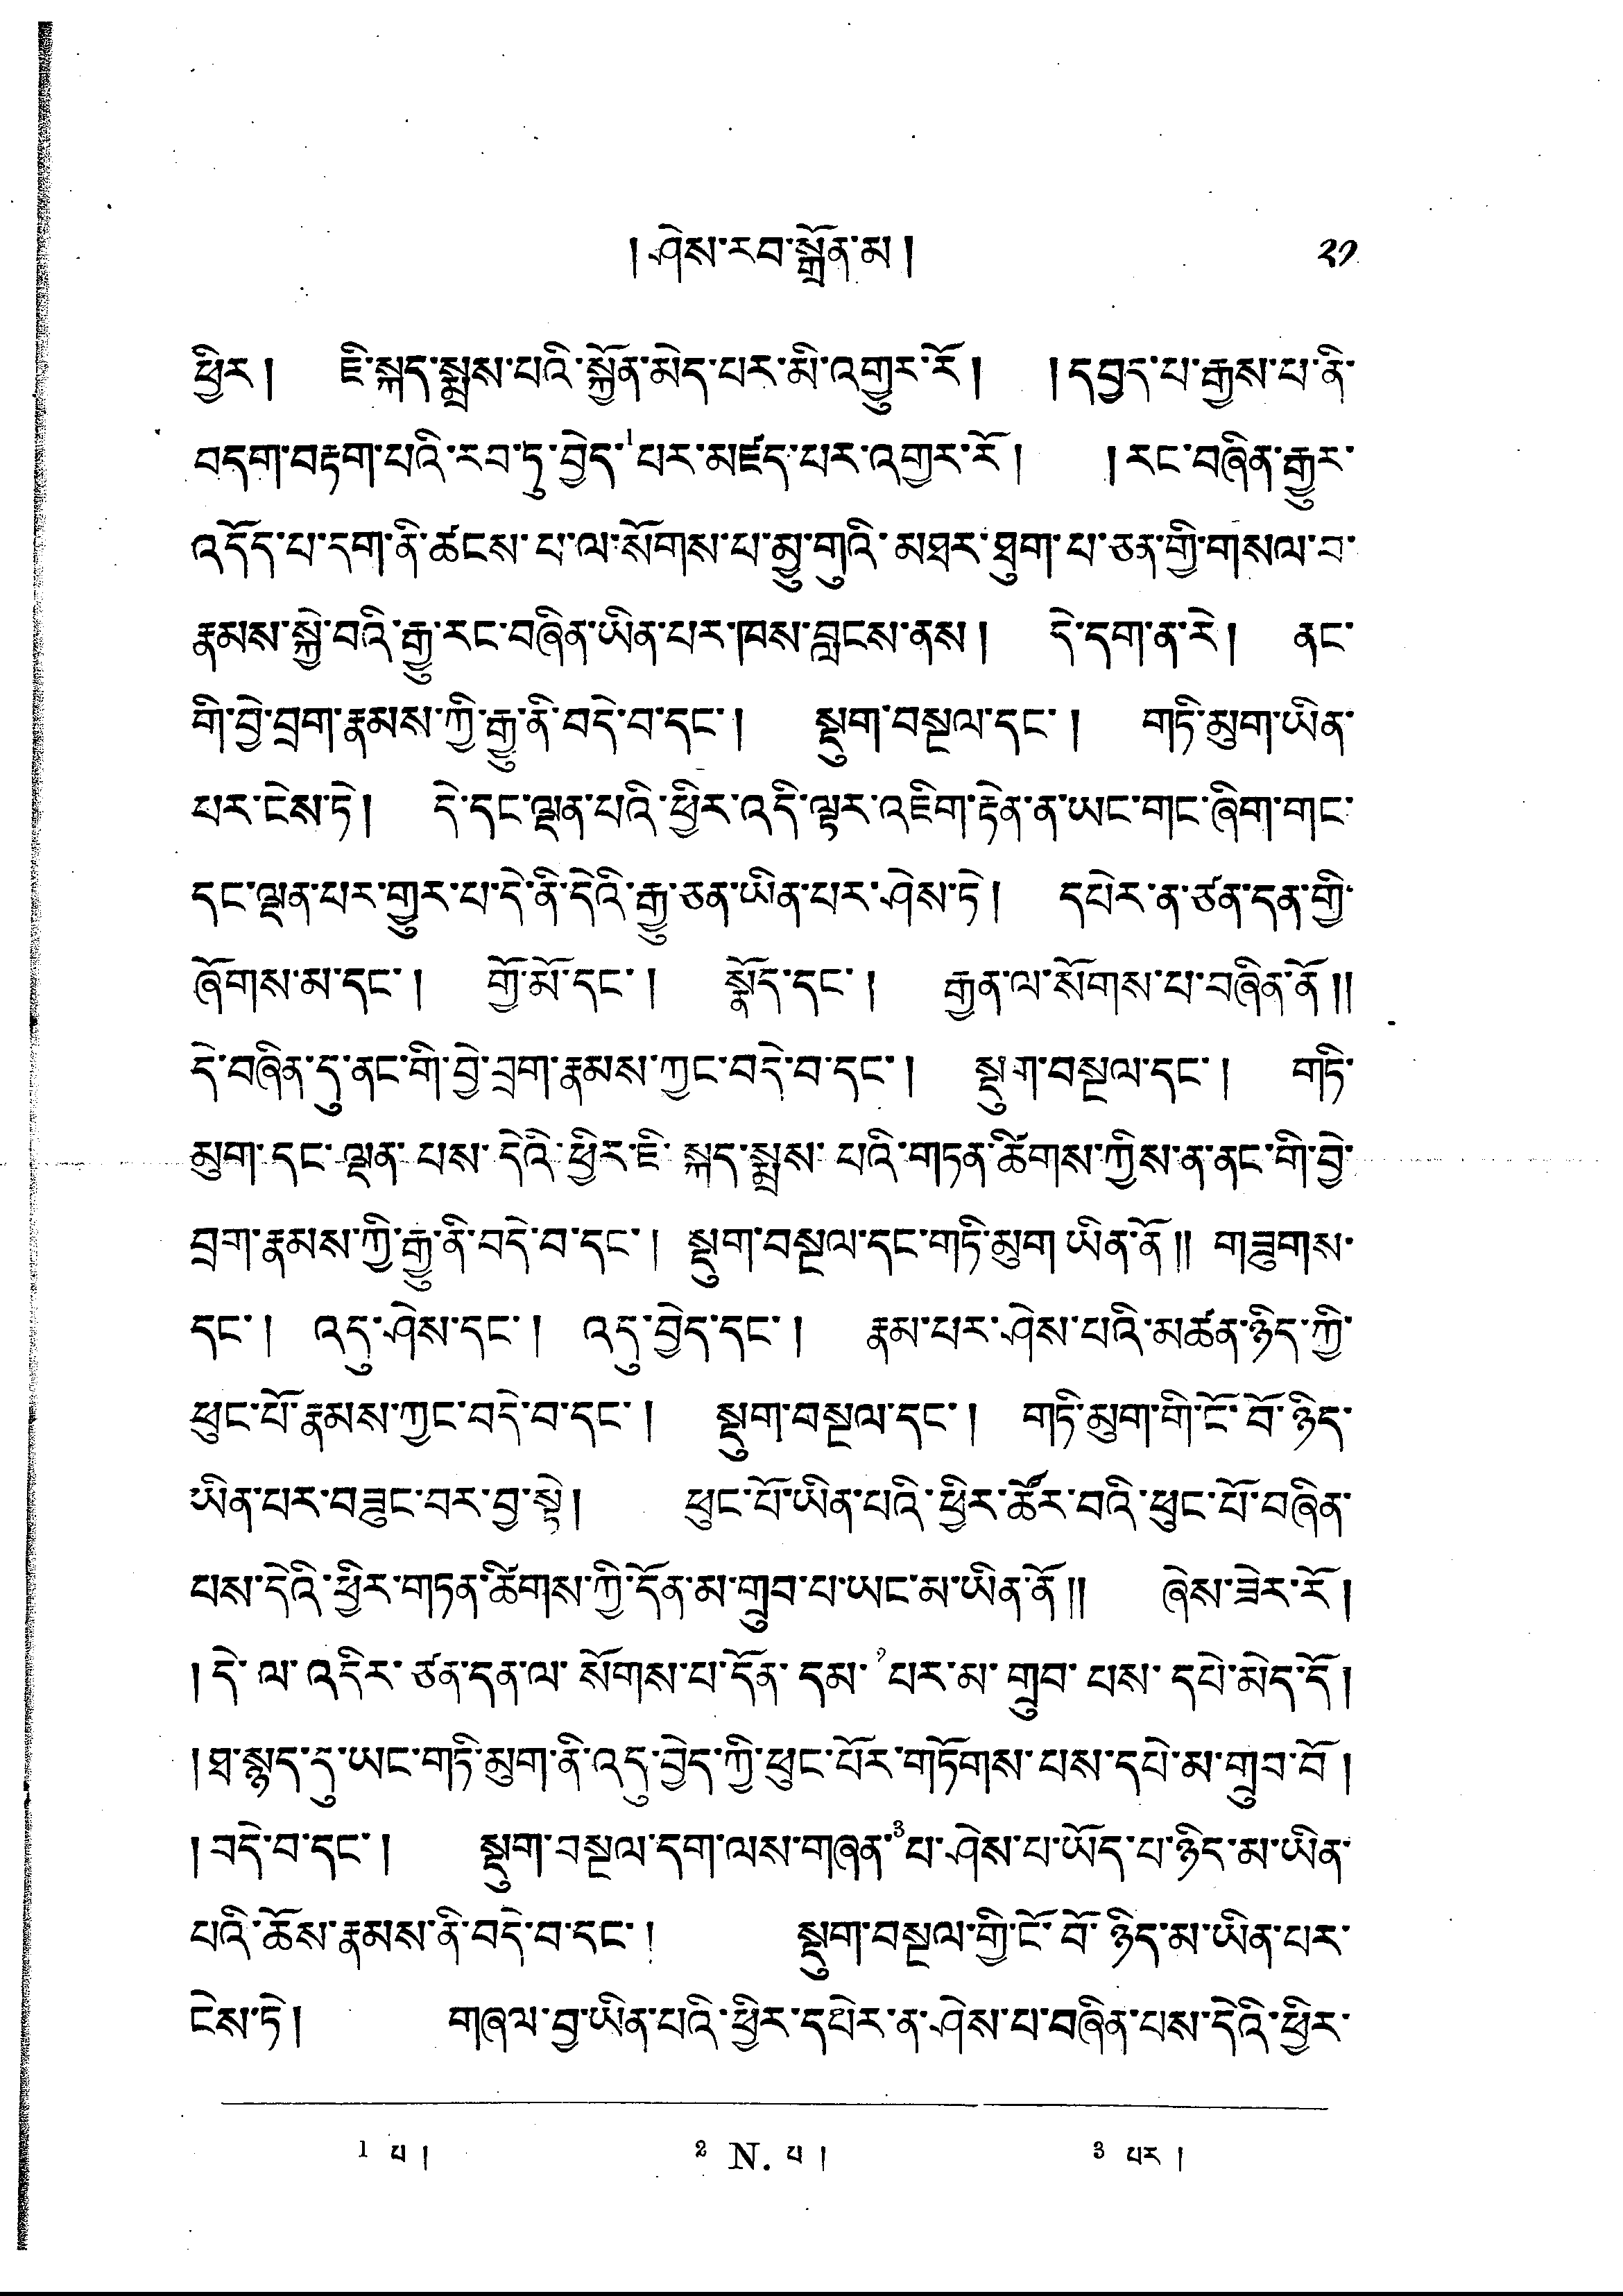 ། ཤེས་རབ་སྒྲོན་མ །
༢༡
ཕྱིར །  ཇི་སྐད་སྨྲས་པའི་སྐྱོན་མེད་པར་མི་འགྱུར་རོ །  ། དབྱད་པ་རྒྱས་པ་ནི་
བདག་བརྟག་པའི་རབ་ཏུ་བྱེད་¹པར་མཛད་པར་འགྱར་རོ །  ། རང་བཞིན་རྒྱུར་
འདོད་པ་དག་ནི་ཚངས་པ་ལ་སོགས་པ་མྱུ་གུའི་མཐར་ཐུག་པ་ཅན་གྱི་གསལ་བ་
རྣམས་སྐྱེ་བའི་རྒྱུ་རང་བཞིན་ཡིན་པར་ཁས་བླངས་ནས །  དེ་དག་ན་རེ །  ནང་
གི་བྱེ་བྲག་རྣམས་ཀྱི་རྒྱུ་ནི་བདེ་བ་དང་ །  སྡུག་བསྔལ་དང་ །  གཏི་མུག་ཡིན་
པར་ངེས་ཏེ །  དེ་དང་ལྡན་པའི་ཕྱིར་འདི་ལྟར་འཇིག་རྟེན་ན་ཡང་གང་ཞིག་གང་
དང་ལྡན་པར་གྱུར་པ་དེ་ནི་དེའི་རྒྱུ་ཅན་ཡིན་པར་ཤེས་ཏེ །  དཔེར་ན་ཙན་དན་གྱི་
ཞོགས་མ་དང་ །  གྱོ་མོ་དང་ །  སྣོད་དང་ །  རྒྱན་ལ་སོགས་པ་བཞིན་ནོ །།
དེ་བཞིན་དུ་ནང་གི་བྱེ་བྲག་རྣམས་ཀྱང་བདེ་བ་དང་ །  སྡུག་བསྔལ་དང་ །  གཏི་
མུག་དང་ལྡན་པས་དེའི་ཕྱིར་ཇི་སྐད་སྨྲས་པའི་གཏན་ཚིགས་ཀྱིས་ན་ནང་གི་བྱེ་
བྲག་རྣམས་ཀྱི་རྒྱུ་ནི་བདེ་བ་དང་ །  སྡུག་བསྔལ་དང་གཏི་མུག ཡིན་ནོ །།  གཟུགས་
དང་ །  འདུ་ཤེས་དང་ །  འདུ་བྱེད་དང་ །  རྣམ་པར་ཤེས་པའི་མཚན་ཉིད་ཀྱི་
ཕུང་པོ་རྣམས་ཀྱང་བདེ་བ་དང་ །  སྡུག་བསྔལ་དང་ །  གཏི་མུག་གི་ངོ་བོ་ཉིད་
ཡིན་པར་བཟུང་བར་བྱ་སྟེ །  ཕུང་པོ་ཡིན་པའི་ཕྱིར་ཚོར་བའི་ཕུང་པོ་བཞིན་
པས་དེའི་ཕྱིར་གཏན་ཚིགས་ཀྱི་དོན་མ་གྲུབ་པ་ཡང་མ་ཡིན་ནོ །།  ཞེས་ཟེར་རོ །
། དེ་ལ་འདིར་ཙན་དན་ལ་སོགས་པ་དོན་དམ་²པར་མ་གྲུབ་པས་དཔེ་མེད་དོ །
། ཐ་སྙད་དུ་ཡང་གཏི་མུག་ནི་འདུ་བྱེད་ཀྱི་ཕུང་པོར་གཏོགས་པས་དཔེ་མ་གྲུབ་བོ །
། བདེ་བ་དང་ །  སྡུག་བསྔལ་དག་ལས་གཞན་³པ་ཤེས་པ་ཡོད་པ་ཉིད་མ་ཡིན་
པའི་ཆོས་རྣམས་ནི་བདེ་བ་དང་ །  སྡུག་བསྔལ་གྱི་ངོ་བོ་ཉིད་མ་ཡིན་པར་
ངེས་ཏེ །  གཞལ་བྱ་ཡིན་པའི་ཕྱིར་དཔེར་ན་ཤེས་པ་བཞིན་པས་དེའི་ཕྱིར་
¹ པ །  ² N. པ །  ³ པར །